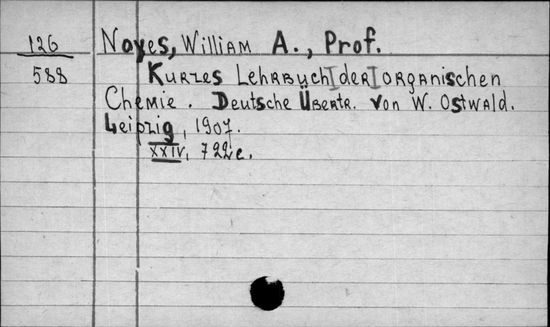 126
588
Noyes, William A., Prof.
Kurzes Lehrbuch der organischen
Chemie. Deutsche Übertr. von W. Ostwald.
Leipzig, 1907.
XXIV, 722 с.